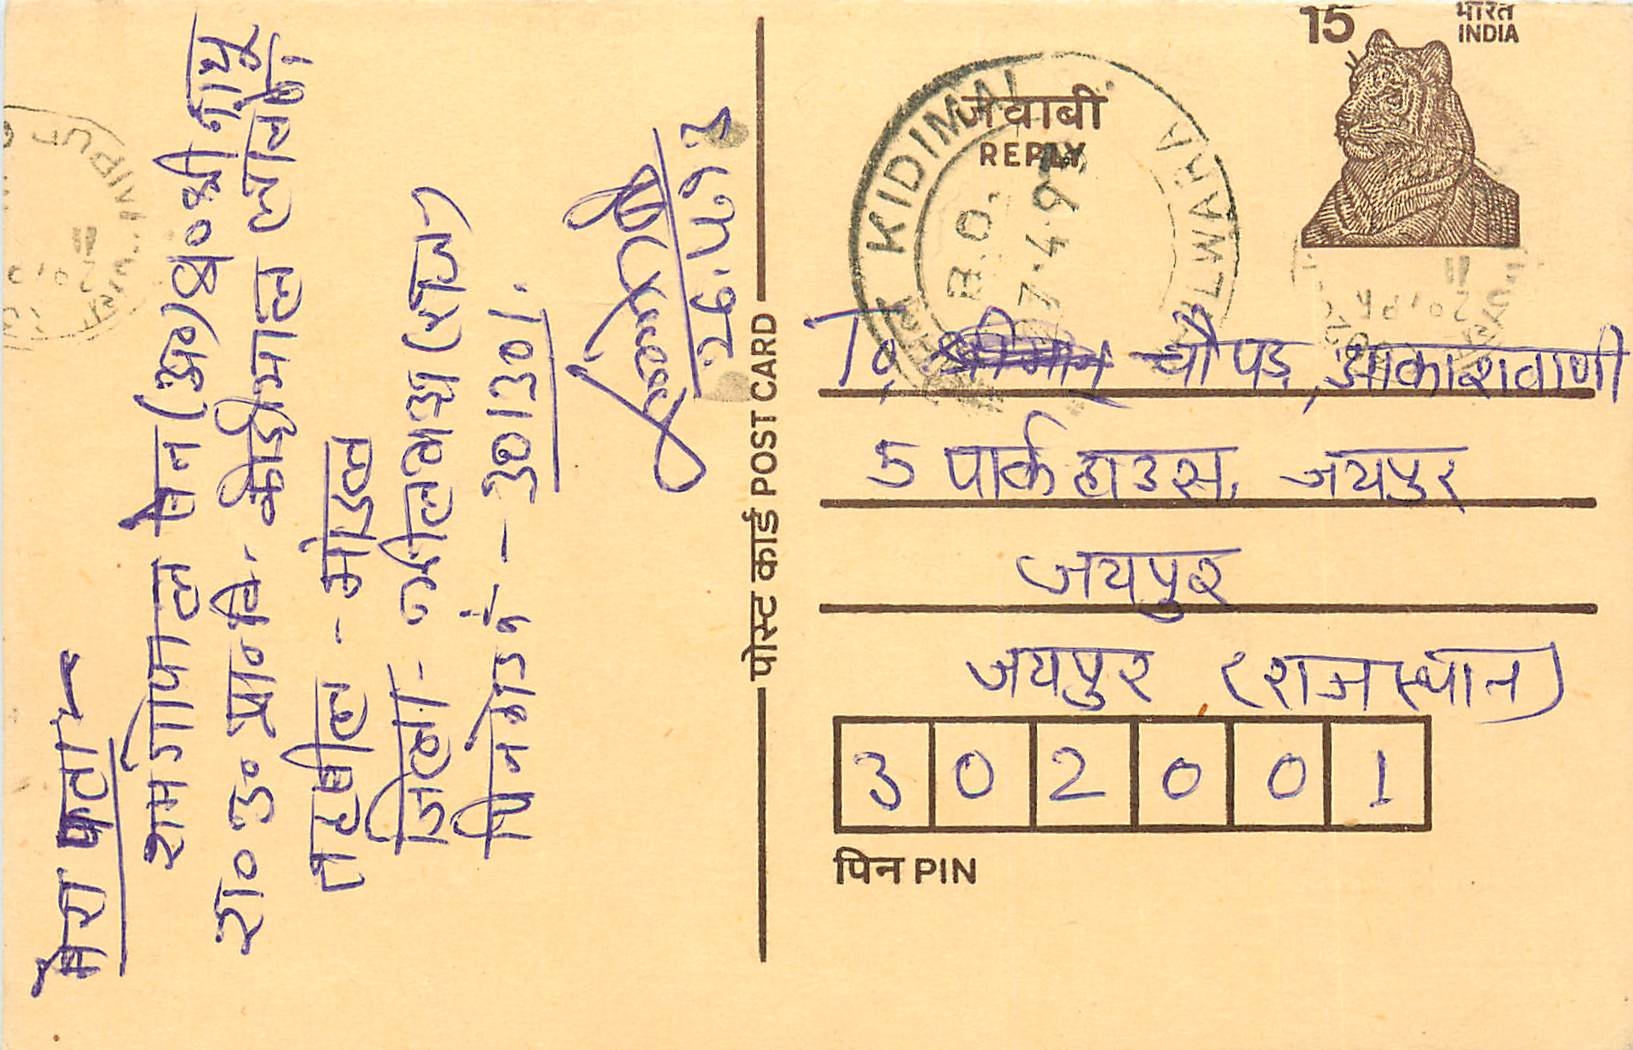 15
भारत
INDIA
जवाबी
REPLY
KIDIMAL
B.O.
7.4.93
To, चौपड़, आकाशवाणी
5 पार्क हाउस, जयपुर
जयपुर
जयपुर (राजस्थान)
3 0 2 0 0 1
पिन PIN
पोस्ट कार्ड POST CARD
मेरा पता
रामगोपाल सेन (अ०)
रा० उ० प्रा० वि. कीडीमाल
तहसील - माण्डल
जिला - भीलवाड़ा (राज)
पिन कोड नं - 301301.
26.4.93